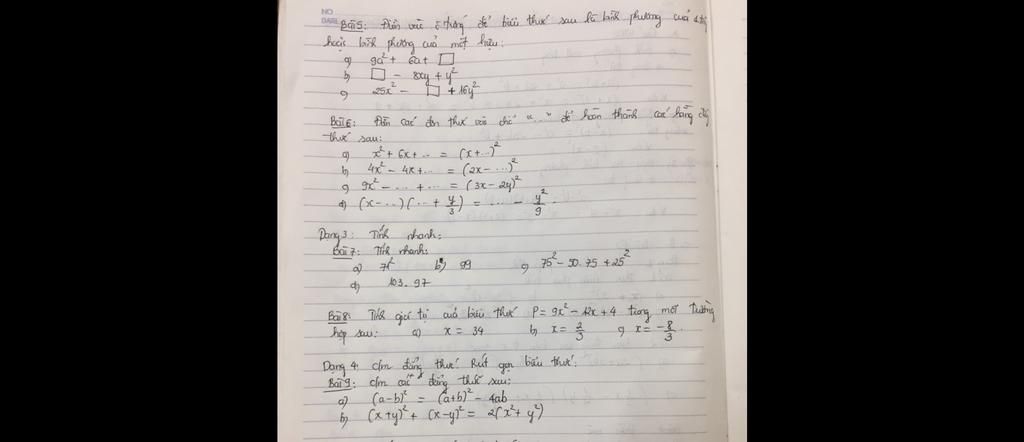 Bài 5: Điền vào ô trống để biểu thức sau là bình phương của 1 tổng
hoặc bình phương của một hiệu:
a) 9a² + 6a + □
b) □ - 8xy + y²
c) 25x² - □ + 16y²
Bài 6: Điền các đơn thức vào chỗ "..." để hoàn thành các hằng đẳng
thức sau:
a) x² + 6x + .. = (x+..)²
b) 4x² - 4x + .. = (2x - ...)²
c) 9x² - ... + ... = (3x - 2y)²
d) (x - ..)(.. + y/3) = ... - y²/9.
Dạng 3: Tính nhanh:
Bài 7: Tính nhanh:
a) 71² b) 99 c) 75² - 50.75 + 25²
d) 103.97
Bài 8: Tính giá trị của biểu thức P = 9x² - 12x + 4 trong mỗi trường
hợp sau: a) x = 34 b) x = 2/3 c) x = -8/3.
Dạng 4: c/m đẳng thức. Rút gọn biểu thức:
Bài 9: c/m các đẳng thức sau:
a) (a-b)² = (a+b)² - 4ab
b) (x+y)² + (x-y)² = 2(x² + y²)